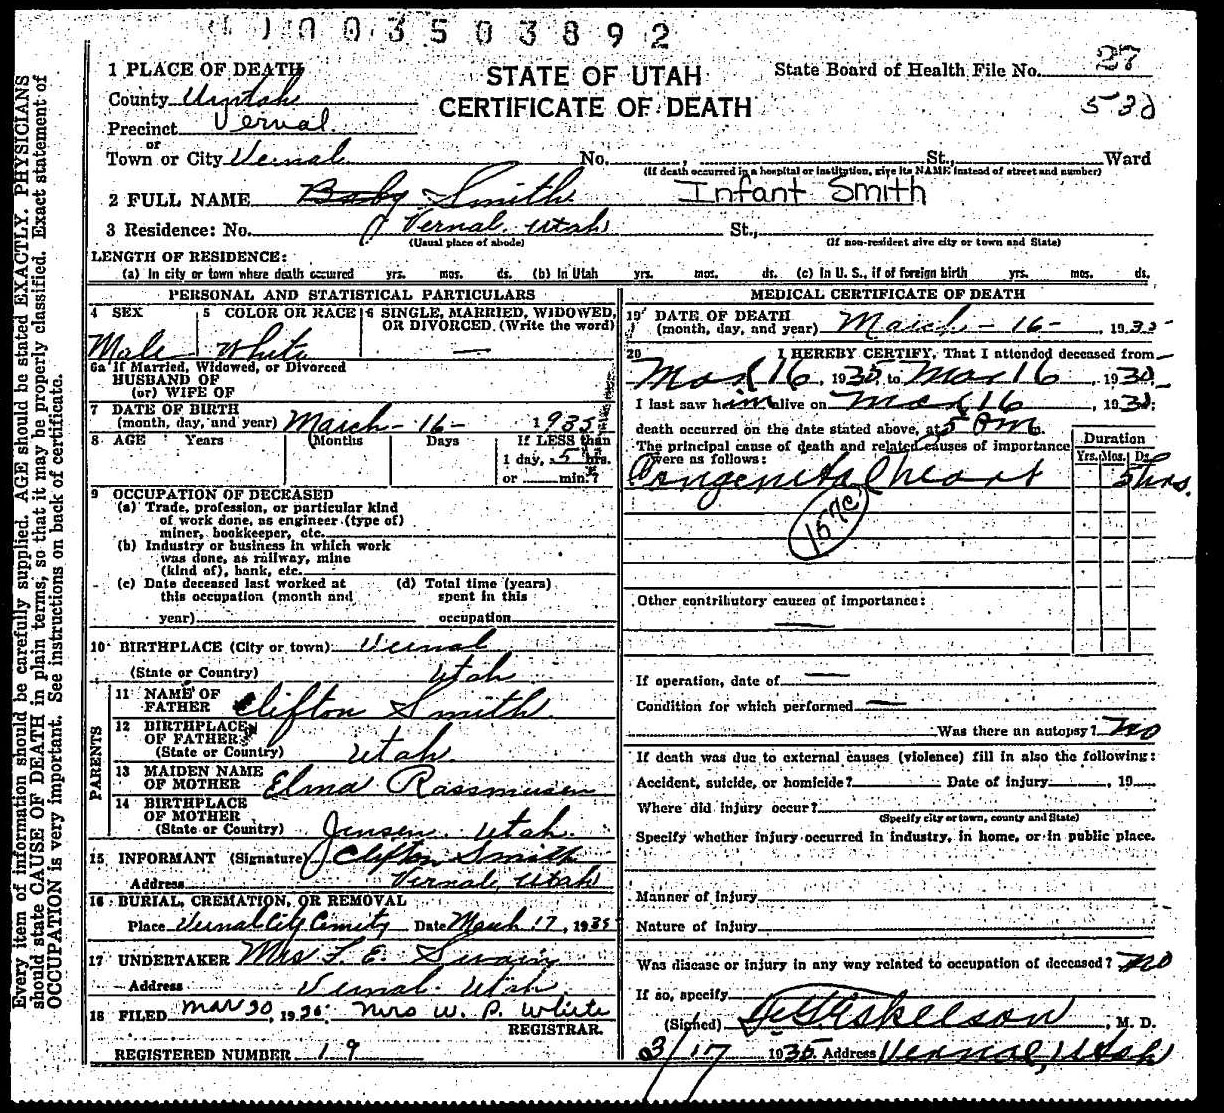 0 0 3 5 0 3 8 9 2
1 PLACE OF DEATH
County Uintah
Precinct Vernal
or
Town or City Vernal No. , St., Ward
(If death occurred in a hospital or institution, give its NAME instead of street and number)
STATE OF UTAH
CERTIFICATE OF DEATH
State Board of Health File No. 27
530
2 FULL NAME Baby Smith Infant Smith
3 Residence: No. Vernal Utah St.,
(Usual place of abode) (If non-resident give city or town and State)
LENGTH OF RESIDENCE:
(a) In city or town where death occurred yrs. mos. ds. (b) In Utah yrs. mos. ds. (c) In U. S., if of foreign birth yrs. mos. ds.
PERSONAL AND STATISTICAL PARTICULARS
4 SEX 5 COLOR OR RACE 6 SINGLE, MARRIED, WIDOWED,
OR DIVORCED (Write the word)
Male White —
6a If Married, Widowed, or Divorced
HUSBAND OF
(or) WIFE OF
7 DATE OF BIRTH
(month, day, and year) March - 16 - 1935
8 AGE Years Months Days If LESS than
1 day, 5 hrs.
or min.?
9 OCCUPATION OF DECEASED
(a) Trade, profession, or particular kind
of work done, as engineer (type of)
miner, bookkeeper, etc.
(b) Industry or business in which work
was done, as railway, mine
(kind of), bank, etc.
(c) Date deceased last worked at (d) Total time (years)
this occupation (month and spent in this
year) occupation
10 BIRTHPLACE (City or town) Vernal
(State or Country) Utah
PARENTS
11 NAME OF
FATHER Clifton Smith
12 BIRTHPLACE
OF FATHER
(State or Country) Utah
13 MAIDEN NAME
OF MOTHER Elma Rassmusen
14 BIRTHPLACE
OF MOTHER
(State or Country) Jensen Utah
15 INFORMANT (Signature) Clifton Smith
Address Vernal, Utah
16 BURIAL, CREMATION, OR REMOVAL
Place Vernal City Cemety Date March 17, 1935
17 UNDERTAKER Mrs F. E. Swain
Address Vernal Utah
18 FILED Mar 30, 1935 Mrs W. P. White
REGISTRAR.
REGISTERED NUMBER 19
MEDICAL CERTIFICATE OF DEATH
19 DATE OF DEATH
(month, day, and year) March - 16 - , 1935
20 I HEREBY CERTIFY, That I attended deceased from
Mar 16, 1935 to Mar 16, 1935
I last saw him alive on Mar 16, 1935;
death occurred on the date stated above, at 5 Pm.
The principal cause of death and related causes of importance
were as follows:
Duration
Yrs. Mos. Ds.
Congenital heart 5 hrs.
157c
Other contributory causes of importance:
—
If operation, date of —
Condition for which performed —
Was there an autopsy? No
If death was due to external causes (violence) fill in also the following:
Accident, suicide, or homicide? Date of injury , 19
Where did injury occur?
(Specify city or town, county and State)
Specify whether injury occurred in industry, in home, or in public place.
Manner of injury
Nature of injury
Was disease or injury in any way related to occupation of deceased? No
If so, specify
(Signed) Eskelson, M. D.
3/17 1935 Address Vernal, Utah
Every item of information should be carefully supplied. AGE should be stated EXACTLY. PHYSICIANS
should state CAUSE OF DEATH in plain terms, so that it may be properly classified. Exact statement of
OCCUPATION is very important. See instructions on back of certificate.